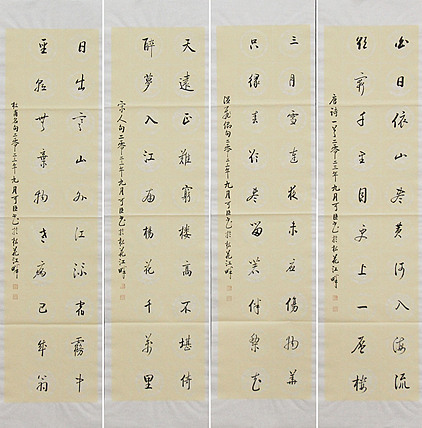 白日依山尽黄河入海流
欲穷千里目更上一层楼
唐诗一首二零二三年九月 书於松花江畔
三月雪连夜未应伤物华
只缘春欲尽留著伴梨花
温庭筠句二零二三年九月 书於松花江畔
天远正难穷楼高不堪倚
醉梦入江南杨花千万里
宋人句二零二三年九月 书於松花江畔
日出寒山外江流宿雾中
圣朝无弃物老病已成翁
杜甫名句二零二三年九月 书於松花江畔